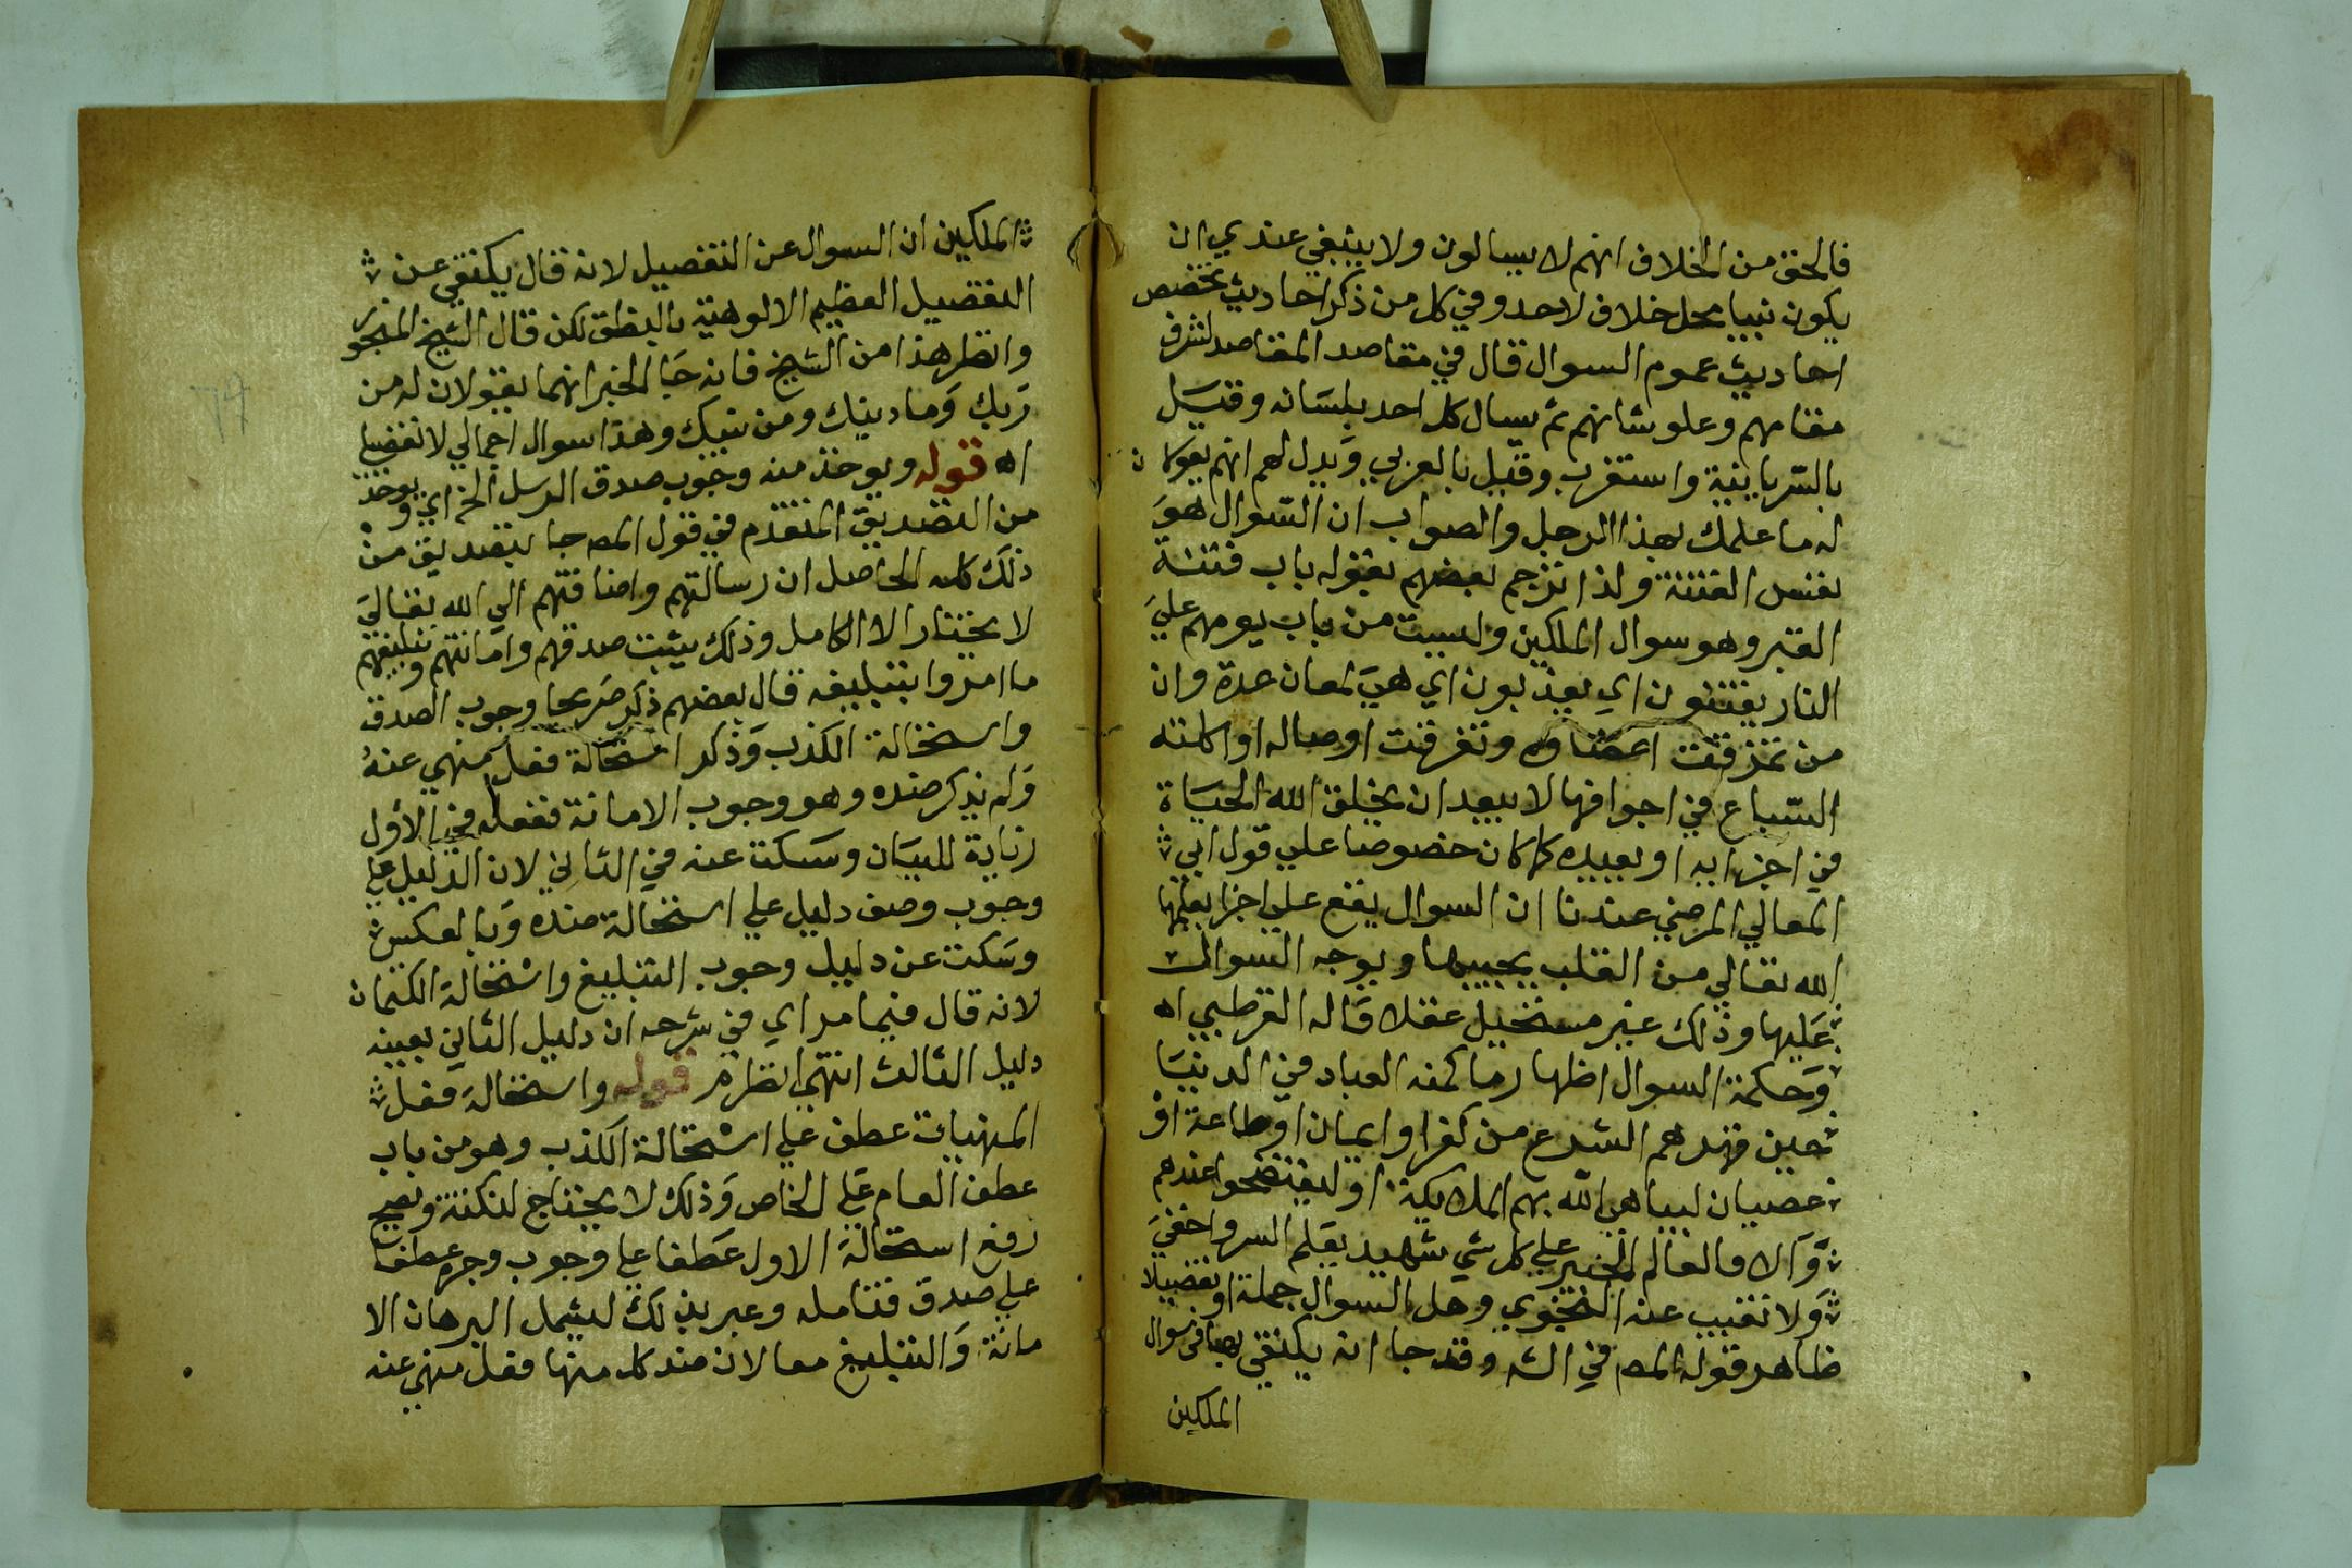 فالحق من الخلاف انهم لا يسالون ولا ينبغي عندي ان
يكون نبينا محل خلاف لاحد وفي كل من ذكر احاديث تخصص
احاديث عموم السوال قال في مقاصد المقاصد لشرف
مقامهم وعلو شانهم ثم يسال كل احد بلسانه وقيل
بالسريانية واستغرب وقيل بالعربي ويدل لهم انهم يقولان
له ما علمك بهذا الرجل والصواب ان السوال هو
نفس الفتنة ولذا ترجم بعضهم بقوله باب فتنة
القبر وهو سوال الملكين وليست من باب يوم هم علي
النار يفتنون اي يعذبون اي هي لمعان عدة وان
من تمزقت اعضاوه وتفرقت اوصاله او اكلته
السباع في اجوافها لا يبعد ان يخلق الله الحياة
في اجزايه او يعيده كما كان خصوصا علي قول ابي
المعالي المرضي عندنا ان السوال يقع علي اجزا يعلمها
الله تعالي من القلب يحييها ويوجه السوال
عليها وذلك غير مستحيل عقلا قاله القرطبي اه
وحكمة السوال اظهار ما كتمه العباد في الدنيا
حين قهرهم الشرع من كفر او ايمان او طاعة او
عصيان ليباهي الله بهم الملايكة او ليفتضحوا عندهم
والا فالعالم الخبير علي كل شي شهيد يعلم السر واخفي
ولا تغيب عنه النجوي وهل السوال جملة او تفصيلا
ظاهر قوله المص في الشه وقد جا انه يكتفي بهما في سوال
الملكين
الملكين ان السوال عن التفصيل لانه قال يكتفي عن
التفصيل العظيم الالوهية بالنطق لكن قال الشيخ المنجور
وانظر هذا من الشيخ فانه جا الخبر انهما يقولان له من
ربك وما دينك ومن نبيك وهذا سوال اجمالي لا تفضيل
اه قوله ويوخذ منه وجوب صدق الرسل الخ اي ويوخذ
من التصديق المتقدم في قول المص جا بتصديق من
ذلك كله الحاصل ان رسالتهم واضافتهم الي الله تعالي
لا يختار الا الكامل وذلك يثبت صدقهم وامانتهم وتبليغهم
ما امروا بتبليغه قال بعضهم ذكر صريحا وجوب الصدق
واستحالة الكذب وذكر استحالة فعل منهي عنه
ولم يذكر ضده وهو وجوب الامانة ففعله في الاول
زيادة للبيان وسكت عنه في الثاني لان الدليل علي
وجوب وصف دليل علي استحالة ضده وبالعكس
وسكت عن دليل وجوب التبليغ واستحالة الكتمان
لانه قال فيما مر اي في شرحه ان دليل الثاني بعينه
دليل الثالث انتهي انظره قوله واستحالة فعل
المنهيات عطف علي استحالة الكذب وهو من باب
عطف العام علي الخاص وذلك لا يحتاج لنكتة ويصح
رفع استحالة الاول عطفا علي وجوب وجره عطفا
علي صدق فتامله وعبر بذلك ليشمل البرهان الا
مانة والتبليغ معا لان ضد كل منها فعل منهي عنه